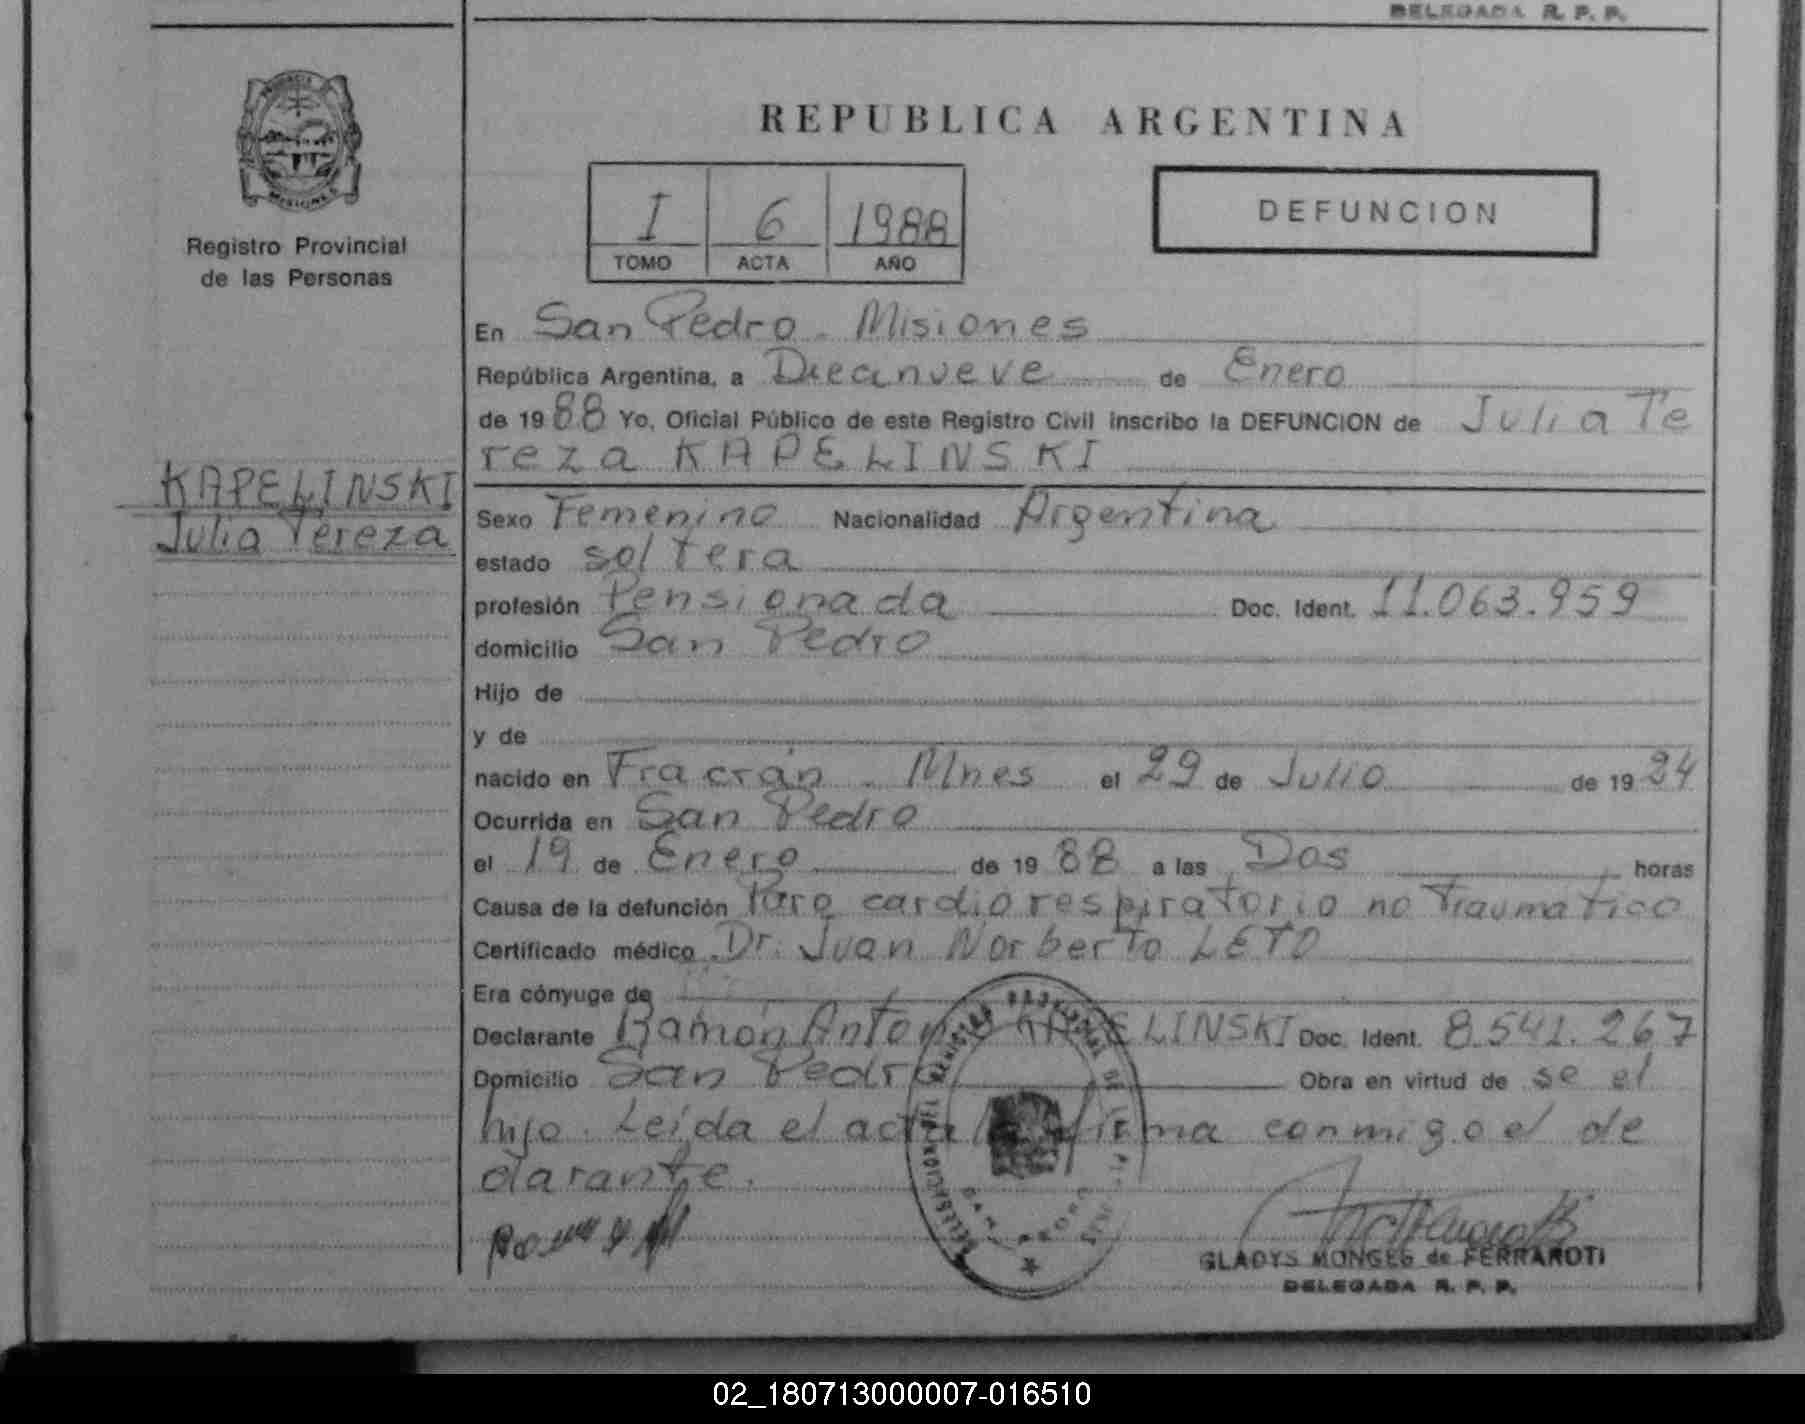 DELEGADA R. P. P.
PROVINCIA
MISIONES
Registro Provincial
de las Personas
KAPELINSKI
Julia Tereza
REPUBLICA ARGENTINA
I 6 1988
TOMO ACTA AÑO
DEFUNCION
En San Pedro - Misiones
República Argentina, a Diecinueve de Enero
de 1988 Yo, Oficial Público de este Registro Civil inscribo la DEFUNCION de Julia Te
reza KAPELINSKI
Sexo Femenino Nacionalidad Argentina
estado soltera
profesión Pensionada Doc. Ident. 11.063.959
domicilio San Pedro
Hijo de
y de
nacido en Fracrán - Mnes el 29 de Julio de 1924
Ocurrida en San Pedro
el 19 de Enero de 1988 a las Dos horas
Causa de la defunción Paro cardio respiratorio no traumático
Certificado médico Dr. Juan Norberto LETO
Era cónyuge de
Declarante Ramón Antonio KAPELINSKI Doc. Ident. 8.541.267
Domicilio San Pedro Obra en virtud de se el
hijo. Leída el acta la firma conmigo el de
clarante.
GLADYS MONGES de FERRAROTI
DELEGADA R. P. P.
02_180713000007-016510